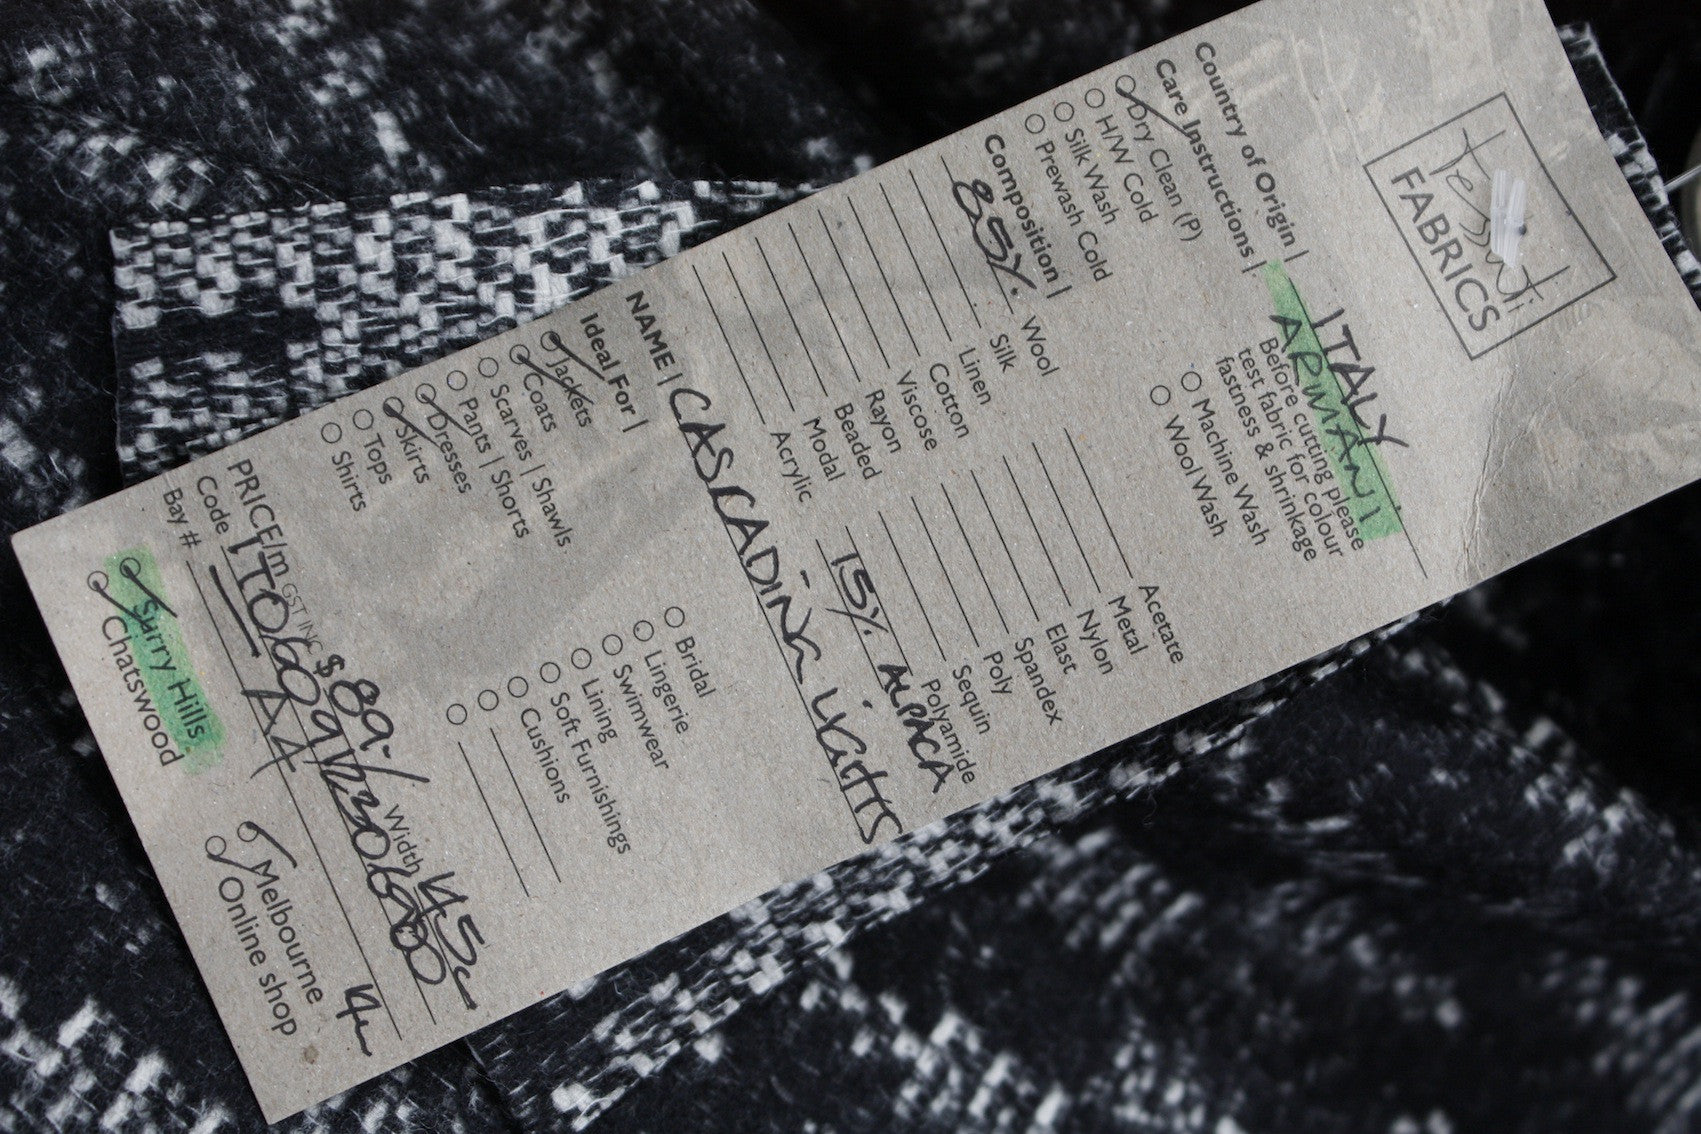 Tessuti
FABRICS
Country of Origin | ITALY
ARMANI
Care Instructions | Before cutting please
test fabric for colour
fastness & shrinkage
Dry Clean (P)
H/W Cold
Silk Wash
Prewash Cold
Machine Wash
Wool Wash
Composition |
85%. Wool
Silk
Linen
Cotton
Viscose
Rayon
Beaded
Modal
Acrylic
Acetate
Metal
Nylon
Elast
Spandex
Poly
Sequin
Polyamide
15%. ALPACA
NAME | CASCADING LIGHTS
Ideal For |
Jackets
Coats
Scarves | Shawls
Pants | Shorts
Dresses
Skirts
Tops
Shirts
Bridal
Lingerie
Swimwear
Lining
Soft Furnishings
Cushions
PRICE/m GST INC $89.- Width 145c
Code
Bay # AA
Surry Hills
Chatswood
Melbourne
Online shop